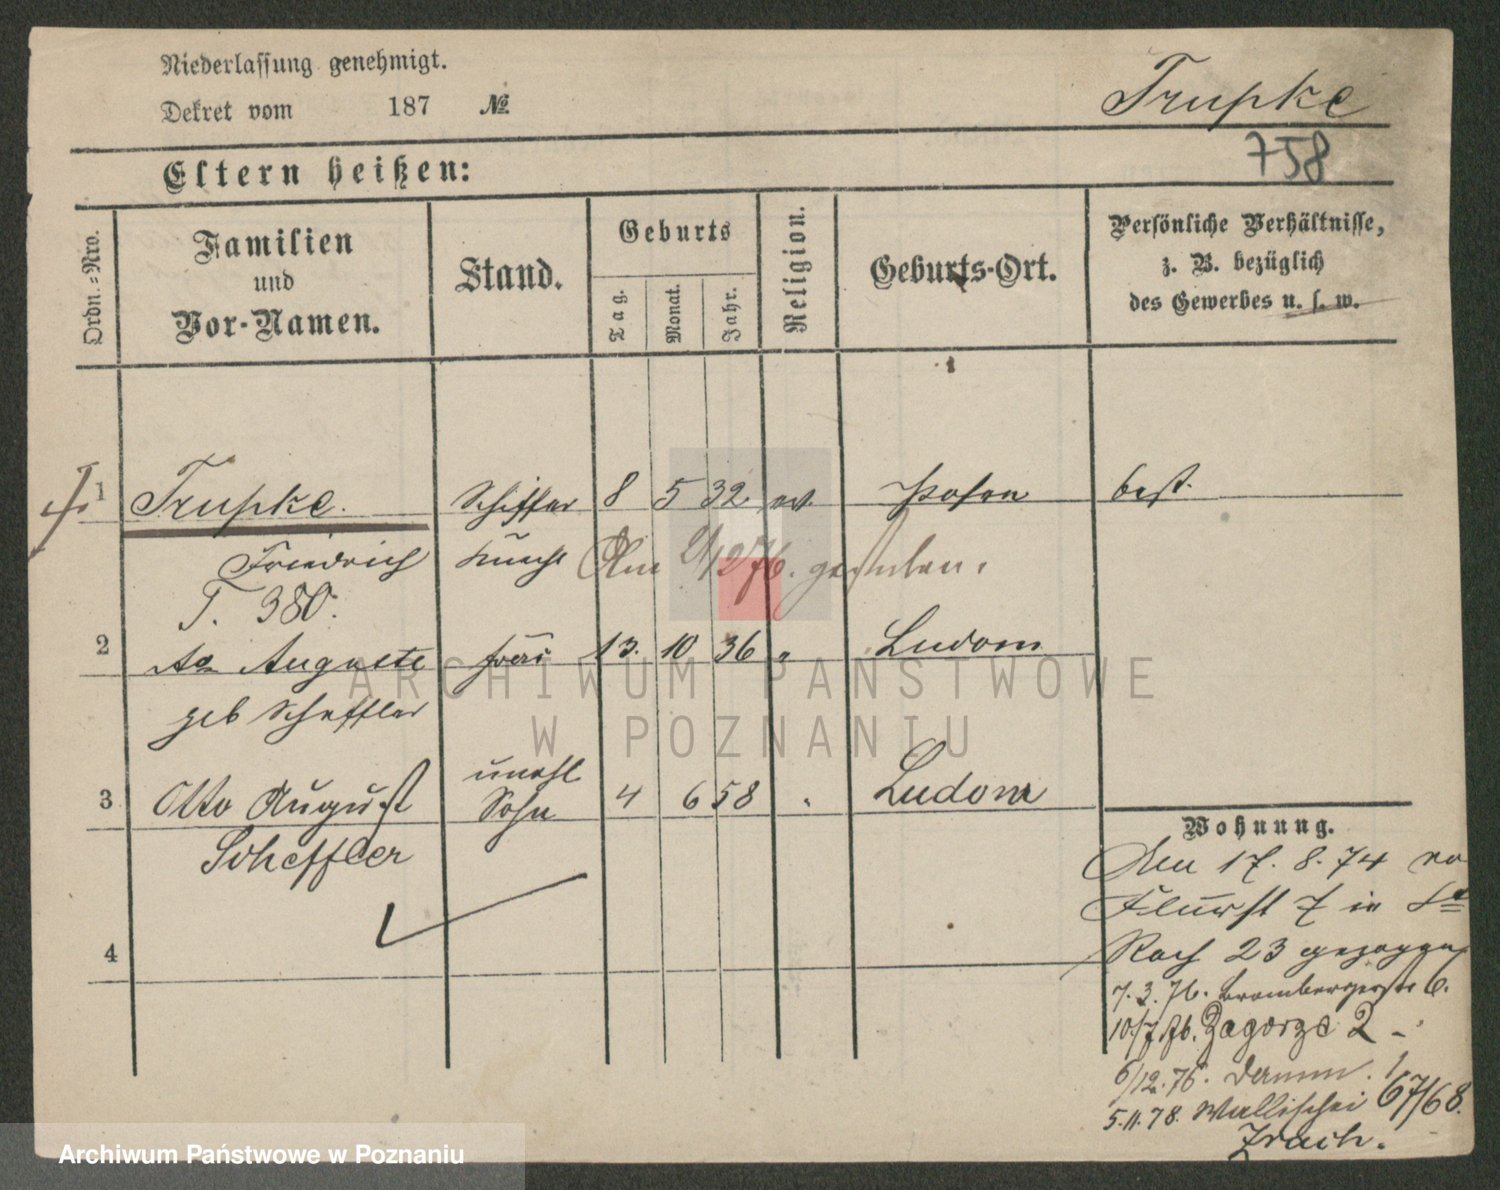 Niederlassung genehmigt.
Dekret vom 187 №
Trupke
758
Eltern heißen:
Ordn.-Nro.
Familien
und
Vor-Namen.
Stand.
Geburts
Tag.
Monat.
Jahr.
Religion.
Geburts-Ort.
Persönliche Verhältnisse,
z. B. bezüglich
des Gewerbes u. s. w.
1 Trupke. Schiffer 8 5 32 ev. Posen best.
Friedrich knecht Am 2/12 76. gestorben.
T. 380.
2 Auguste Frau 13. 10 36 " Ludom
geb Scheffler
unehl
3 Otto August Sohn 4 6 58 " Ludom
Scheffler
4
Wohnung.
Den 17. 8. 74
7 in
23 gezogen
7. 3. 76. Brombergerstr 6.
10/7 76. Zagorze 2 -
6/12. 76. Damm. 1
5. 11. 78. Wallischei 67/68.
ARCHIWUM PAŃSTWOWE
W POZNANIU
Archiwum Państwowe w Poznaniu